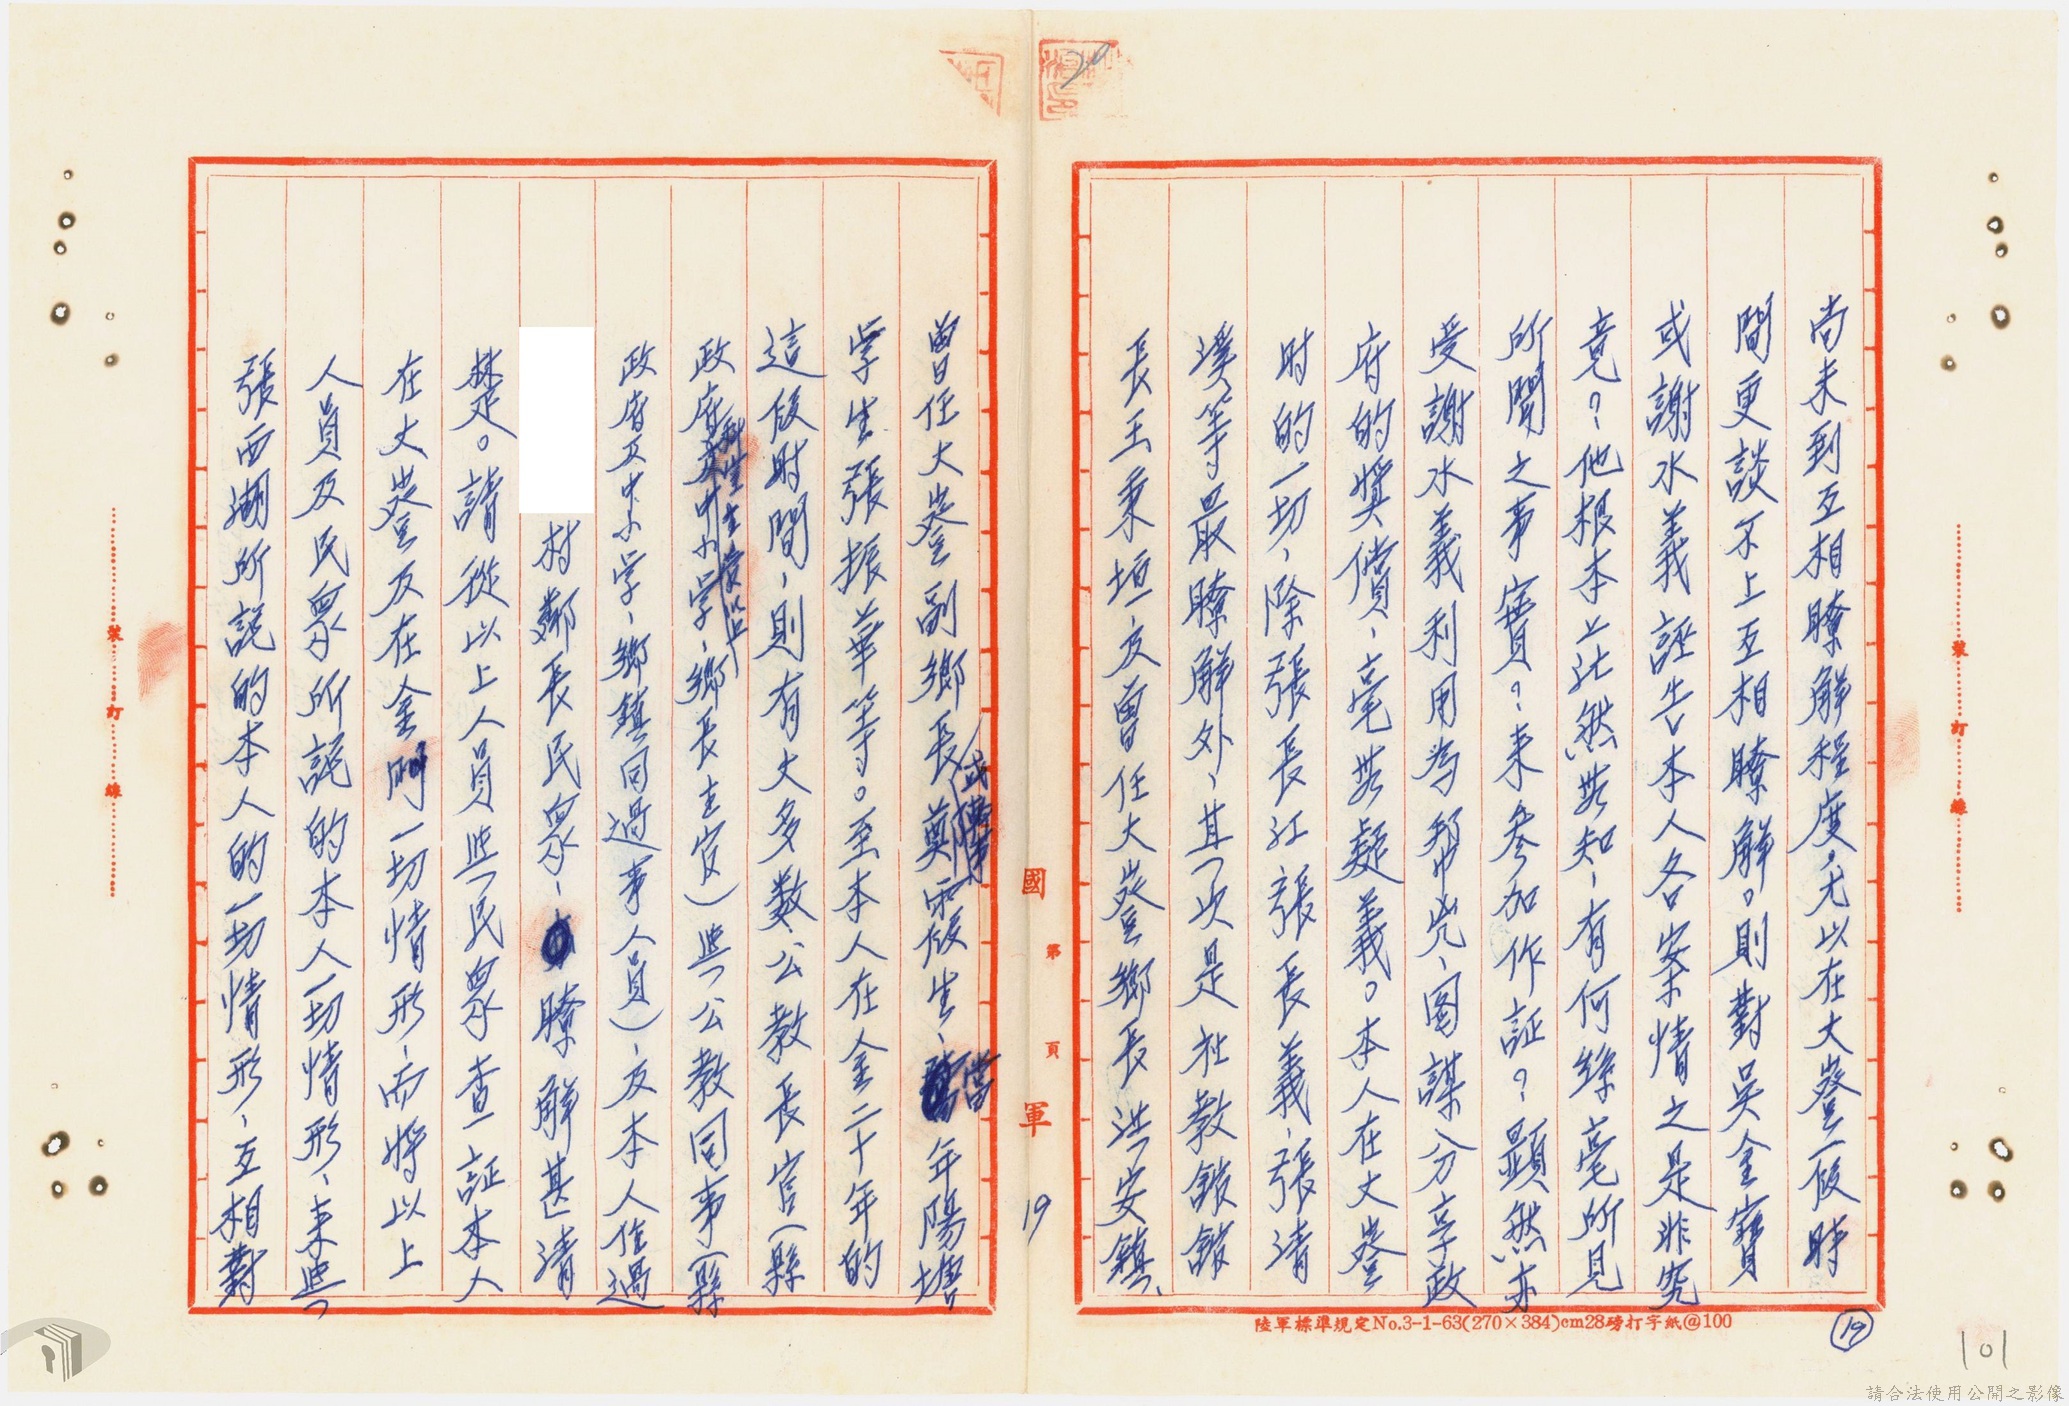 尚未到互相瞭解程度,尤以在大嶝一段時
間更談不上互相瞭解。則對吳金寶
或謝水義誣告本人各案情之是非究
竟?他根本上茫然無知、有何絲毫所見
所聞之事實?來參加作証?顯然亦
受謝水義利用為幫兇、圖謀分享政
府的獎償、毫無疑義。本人在大嶝
時的一切、除張長江張長義、張清
溪等最瞭解外、其次是社教館館
長王秉垣、及曾任大嶝鄉長洪安鎮、
曾任大嶝副鄉長鄭
或陣
生、當年陽塘
学生張振華等。至本人在金二十年的
這段時間、則有大多數公教長官(縣
政府科
中小学、鄉長主官)與公教同事(縣
政府及中小学、鄉鎮同過事人員)、及本人住過
村鄰長民眾、瞭解甚清
楚。請從以上人員與民眾查証本人
在大嶝及在金門一切情形、而將以上
人員及民眾所說的本人一切情形、來與
張西湖所說的本人的一切情形、互相對
國 軍
第 頁
19
20
裝 訂 線
裝 訂 線
陸軍標準規定No.3-1-63(270×384)cm28磅打字紙@100
19
101
請合法使用公開之影像